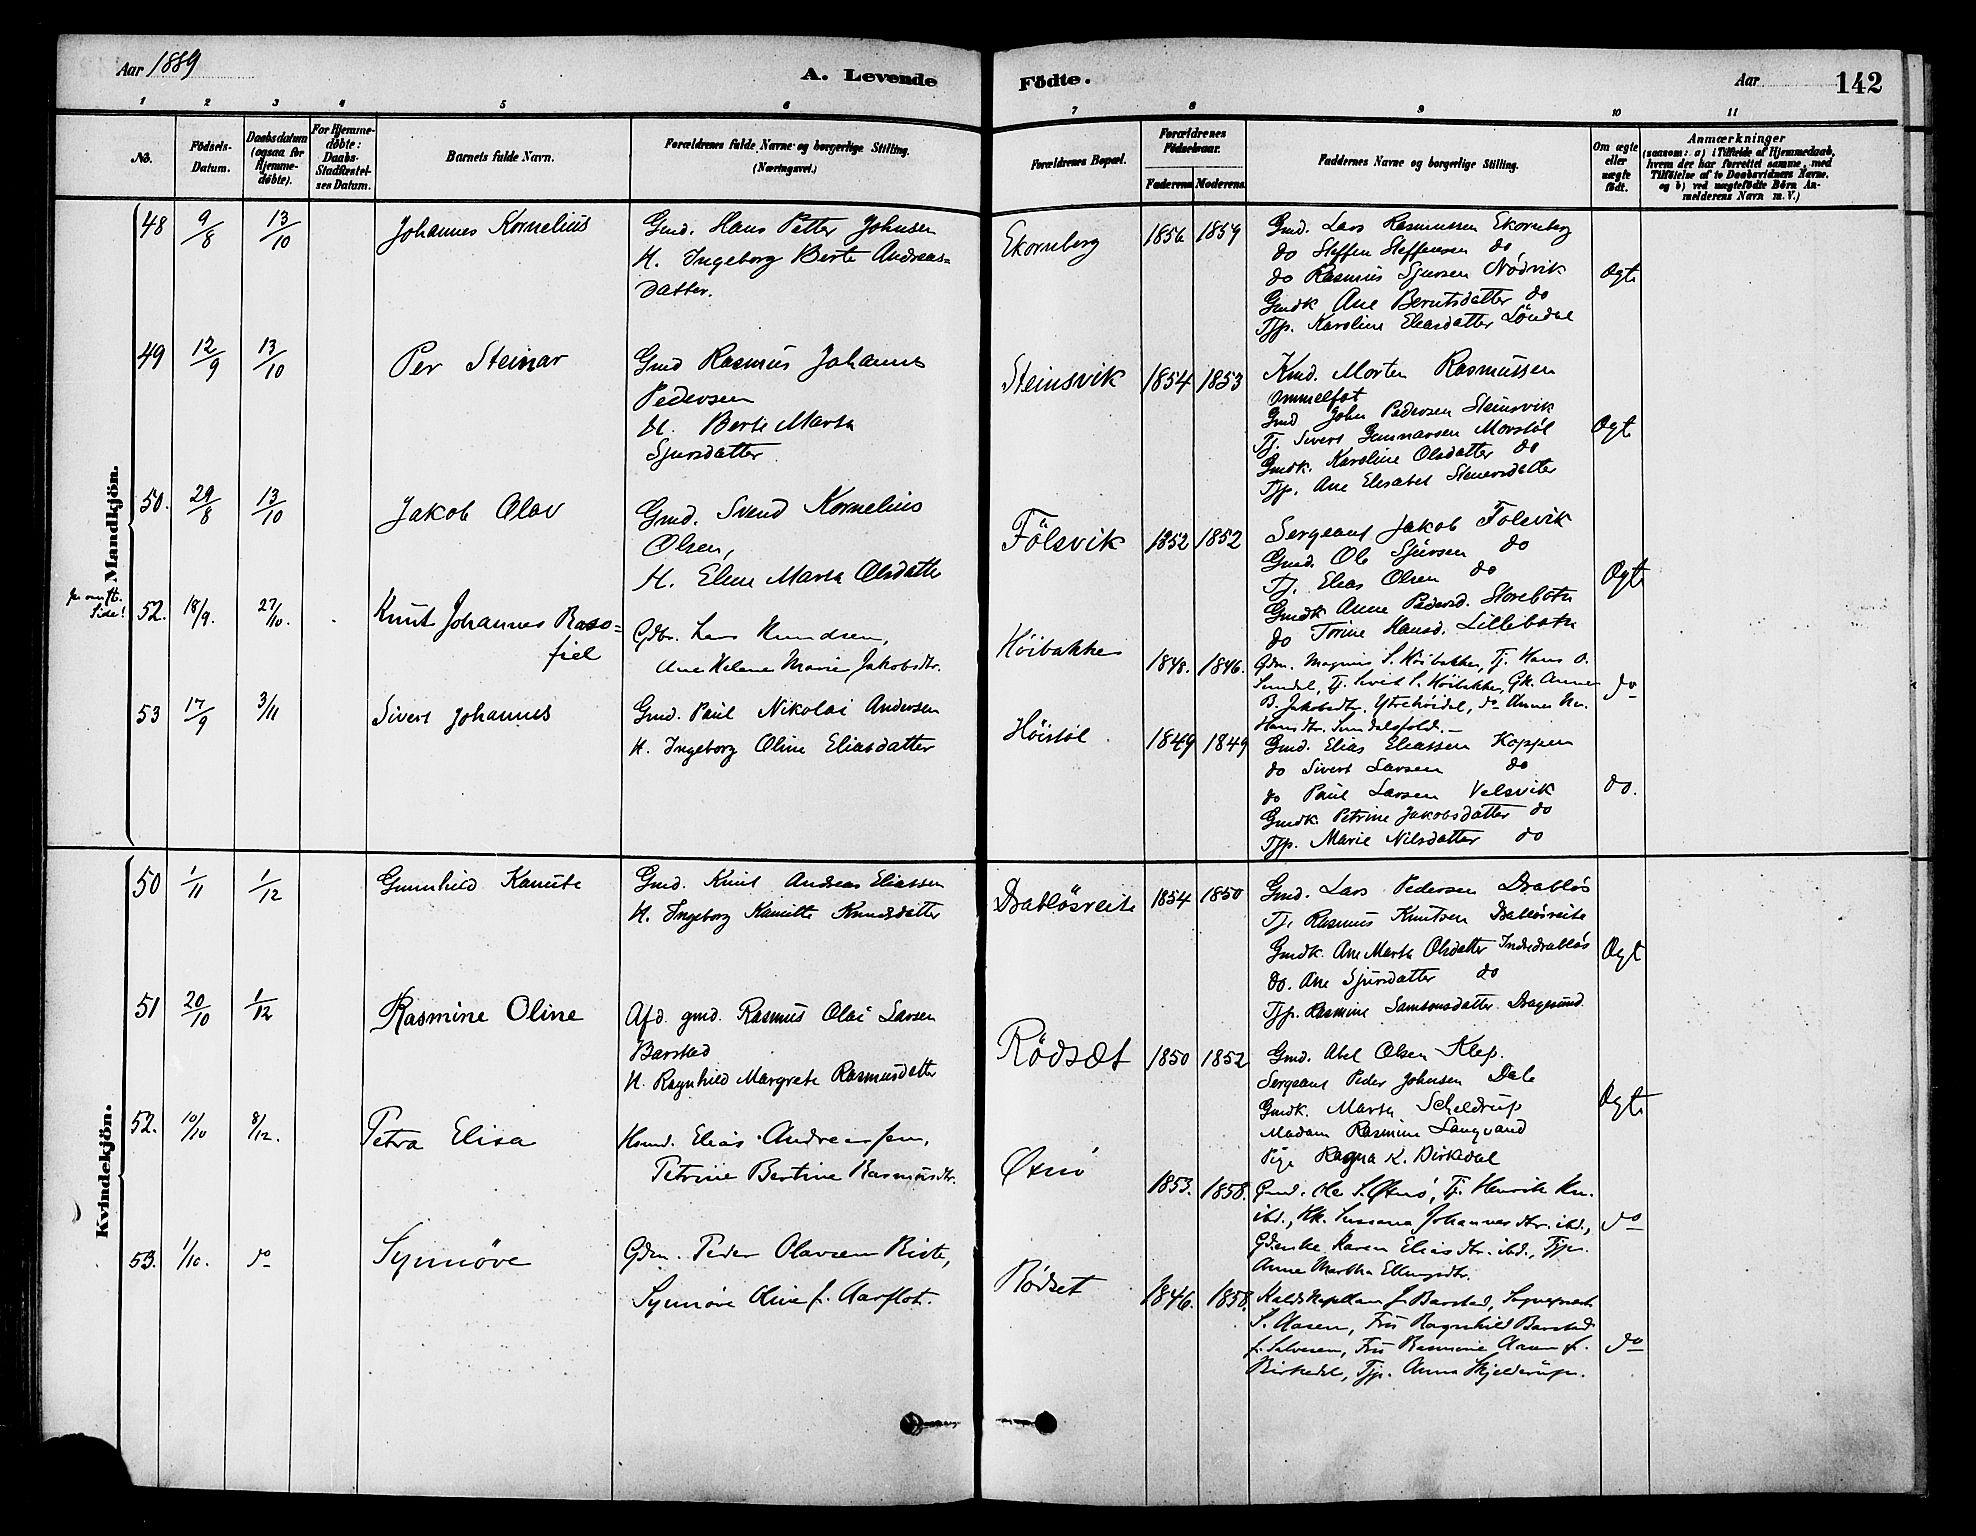 Aar 1889
A. Levende
Födte.
Aar
142
1 2 3 4 5 6 7 8 9 10 11
No.
Födsels-Datum.
Daabsdatum (ogsaa for Hjemme-døbte).
For Hjemme-døbte: Daabs-Stadfæstel-ses Datum.
Barnets fulde Navn.
Forældrenes fulde Navne og borgerlige Stilling. (Næringsvei.)
Forældrenes Bopæl.
Forældrenes Födselsaar.
Faderens Moderens
Faddernes Navne og borgerlige Stilling.
Om ægte eller uægte födt.
Anmærkninger
(saasom: a) i Tilfælde af Hjemmedaab, hvem der har forrettet samme, med Tilföielse af to Daabsvidners Navne, og b) ved uægtefödte Börn An-melderens Navn m. V.)
Mandkjön.
48 9/8 13/10 Johannes Kornelius
Gmd. Hans Petter Johnsen
H. Ingeborg Berte Andreas=
datter.
Ekornberg 1856 1859
Gmd. Lars Rasmussen Ekornberg
do Steffen Steffensen do
do Rasmus Sjursen Nödvik
Gmdk Ane Berntsdatter do
Tjp. Karoline Eliasdatter Löndal
Ægte
49 12/9 13/10 Per Steinar
Gmd Rasmus Johannes
Pedersen
H. Berte Marta
Sjursdatter
Steinsvik 1854 1853
Kmd. Morten Rasmussen
Ommelfot
Gmd John Pedersen Steinsvik
Tj. Sivert Gunnarsen Morstöl
Gmdk. Karoline Olsdatter do
Tjp. Ane Elisabet Steinersdatter
Ægte
50. 29/8 13/10 Jakob Olav
Gmd. Svend Kornelius
Olsen,
H. Elene Marta Olsdatter
Fölsvik 1852 1852
Sergeant Jakob Folsvik
Gmd. Ole Sjursen do
Tj. Elias Olsen do
Gmdk Anne Pedersd. Storebotn
do Trine Hansd. Lillebotn
Ægte
Side!
52. 18/9. 27/10. Knut Johannes Baso=
fiel
Gdbr. Lars Knudsen,
Ane Helene Marie Jakobsdtr.
Höibakke 1848. 1846.
Gdm. Magnus S. Höibakke, Tj. Hans O.
Sundal, Tj. Sivert S. Höibakke, Gk. Anne
B. Jakobsdtr. Ytrehöidal, do Anne Kn.
Hansdtr. Sundalsfold.
do
53 17/9 3/11 Sivert Johannes
Gmd. Paul Nikolai Andersen
H. Ingeborg Oline Eliasdatter
Höistöl 1849 1849
Gmd. Elias Eliassen Koppen
do Sivert Larsen do
do Paul Larsen Velsvik
Gmdk. Petrine Jakobsdatter do
Tjp. Marie Nilsdatter do
do.
Kvindekjön.
50 1/11 1/12 Gunnhild Kamite
Gmd. Knut Andreas Eliassen
H. Ingeborg Kamitte Knudsdatter
Drablösreite 1854 1850
Gmd. Lars Pedersen Drablös
Tj. Rasmus Knutsen Drablösreite
Gmdk. Ane Marta Olsdatter Indredrablös
do. Ane Sjursdatter do
Tjp. Rasmine Samsonsdatter Dragesund
Ægt
51 20/10 1/12 Rasmine Oline
Afd. gmd. Rasmus Olai Larsen
Barstad
H. Ragnhild Margrete Rasmusdatter
Rödsæt 1850 1852
Gmd. Abel Olsen Klep.
Sergeant Peder Johnsen Dale
Gmdk. Marta Scheldrup
Madam Rasmine Langvand
Pige Ragna K. Birkedal
Ægte
52. 10/10 8/12. Petra Elisa
Hsmd. Elias Andreassen,
Petrine Bertine Rasmusdtr.
Øxnö 1853. 1858.
Gmd. Ole S. Øxnö, Tj. Henrik Kn.
ibd., Hk. Susana Johannesdtr. ibd.,
Gdenke Karen Eliasdtr. ibd., Tjp.
Anne Martha Ellingsdtr.
do
53. 1/10. do Synnöve
Gdm. Peder Olavsen Riste,
Synnöve Oline f. Aarflot.
Rödset 1846. 1858.
Kaldskapellan J. Barstad, Sogneprest
S. Aasen, Fru Ragnhild Barstad
f. Salvesen, Fru Rasmine Aasen f.
Birkedal, Tjp. Anna Skjelderup.
do